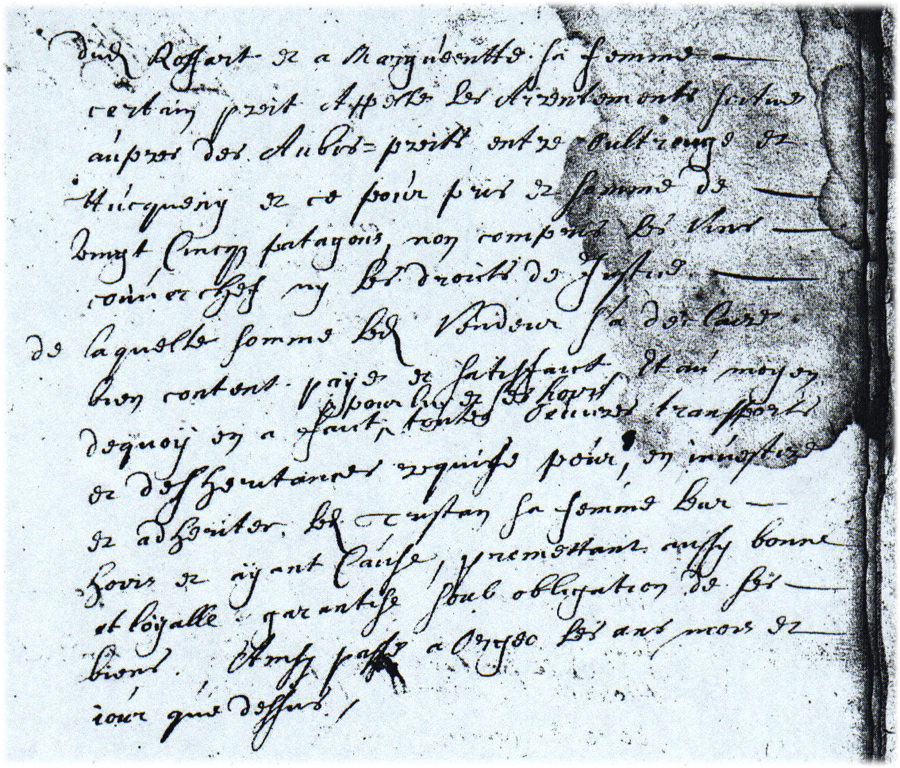 dud Rossart et a Margueritte sa femme
certain preit Appelle les Arrentements scitué
aupres des Aubis=preits entre Bultrouge et
Hucqueny et ce pour pris et somme de
vingt Cincq patagons, non compris les vins
couverchef ny les droits de Justice
de laquelle somme led Vendeur s'a declaré
bien content payé et satisfaict, Et au moyen
pour luy et ses hoirs
dequoy en a faict, toutes oeuvres transports
et desheritances requise pour, en investire
et adheriter led Tristan sa femme leur
hoirs et ayant Cause, promettant aussy bonne
et loyalle garantise soub obligation de ses
biens. Ainsy passé a Orgeo les ans mois et
iour que dessus,